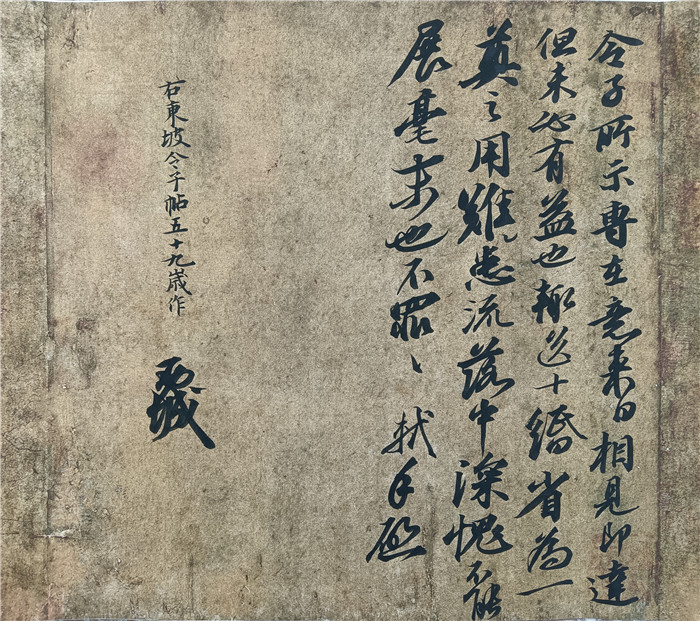 令子所示專在意來日相見即達
但未必有益也輙送十緡省為一
奠之用難患流落中深愧不能
展毫末也不罪〻 軾手啟
右東坡令子帖五十九歲作